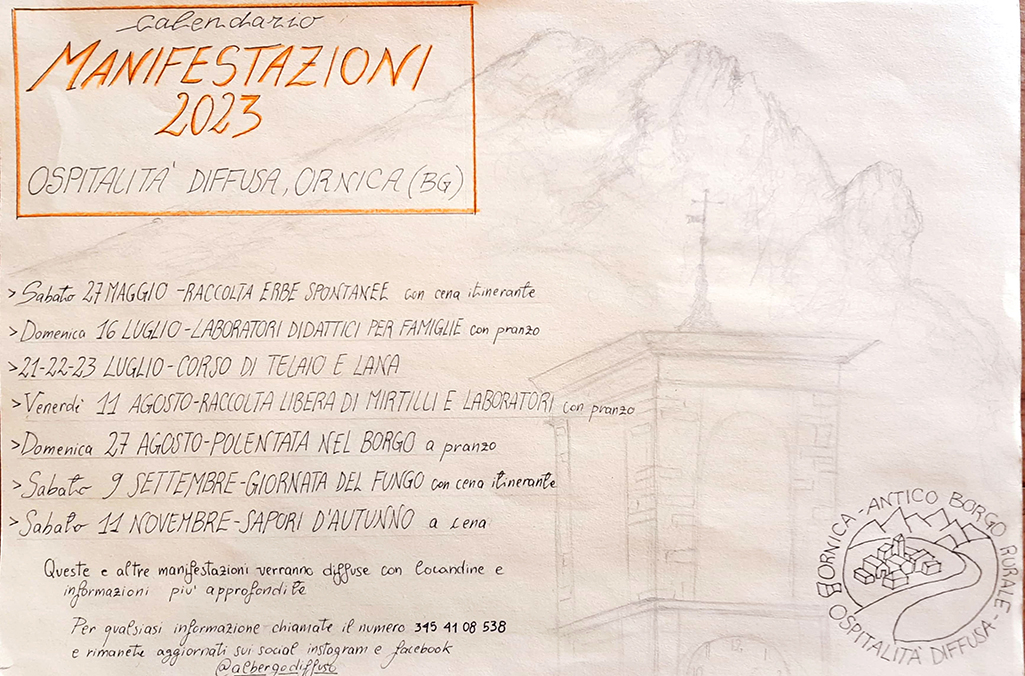 calendario
MANIFESTAZIONI
2023
OSPITALITA' DIFFUSA, ORNICA (BG)
> Sabato 27 MAGGIO - RACCOLTA ERBE SPONTANEE con cena itinerante
> Domenica 16 LUGLIO - LABORATORI DIDATTICI PER FAMIGLIE con pranzo
> 21-22-23 LUGLIO - CORSO DI TELAIO E LANA
> Venerdì 11 AGOSTO - RACCOLTA LIBERA DI MIRTILLI E LABORATORI con pranzo
> Domenica 27 AGOSTO - POLENTATA NEL BORGO a pranzo
> Sabato 9 SETTEMBRE - GIORNATA DEL FUNGO con cena itinerante
> Sabato 11 NOVEMBRE - SAPORI D'AUTUNNO a cena
Queste e altre manifestazioni verranno diffuse con locandine e
informazioni piu' approfondite
Per qualsiasi informazione chiamate il numero 345 41 08 538
e rimanete aggiornati sui social instagram e facebook
@albergodiffuso
ORNICA - ANTICO BORGO RURALE -
OSPITALITÀ DIFFUSA -